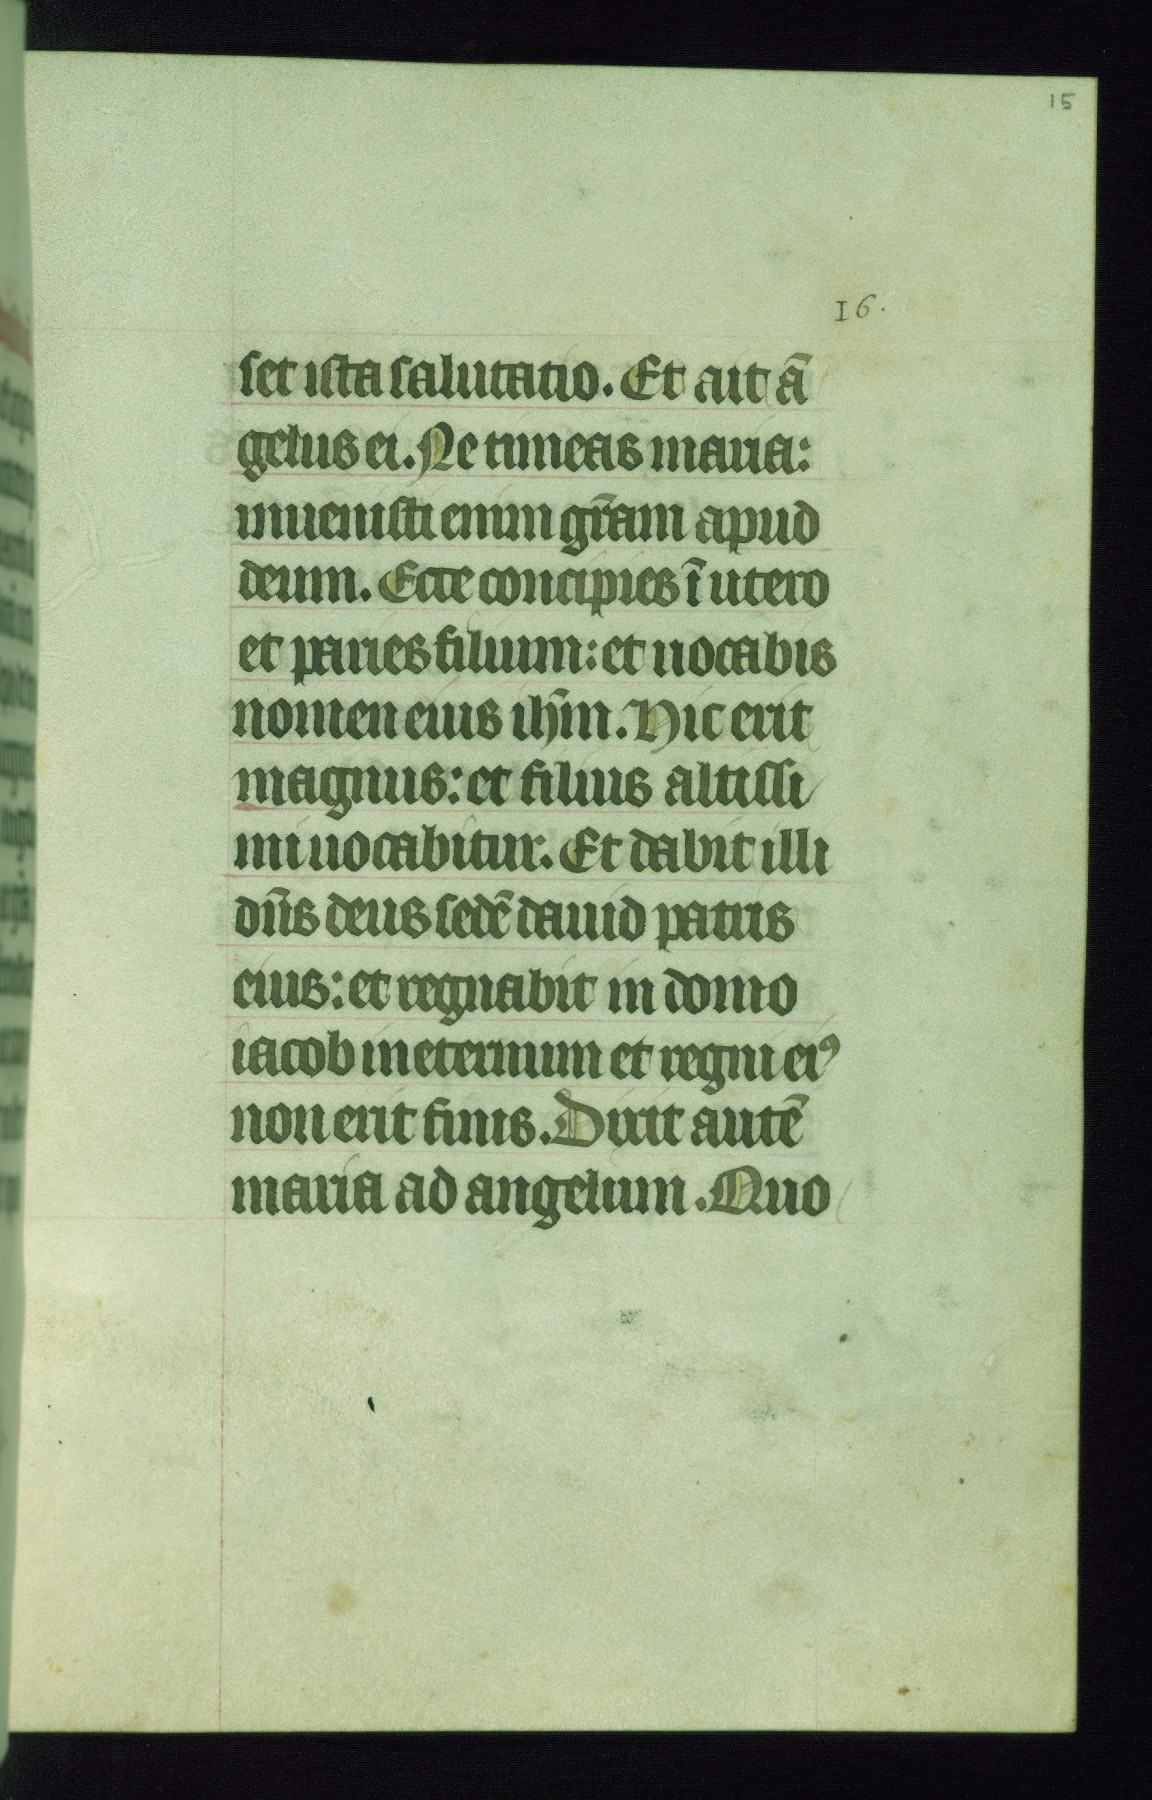 15
16.
set ista salutatio. Et ait ā
gelus ei. Ne timeas maria:
inuenisti enim gr̄am apud
deum. Ecce concipies ī utero
et paries filium: et uocabis
nomen eius ihm̄. Hic erit
magnus: et filius altissi
mi uocabitur. Et dabit illi
dn̄s deus sedē dauid patris
eius: et regnabit in domo
iacob in eternum et regni eiꝰ
non erit finis. Dixit autē
maria ad angelum. Quo